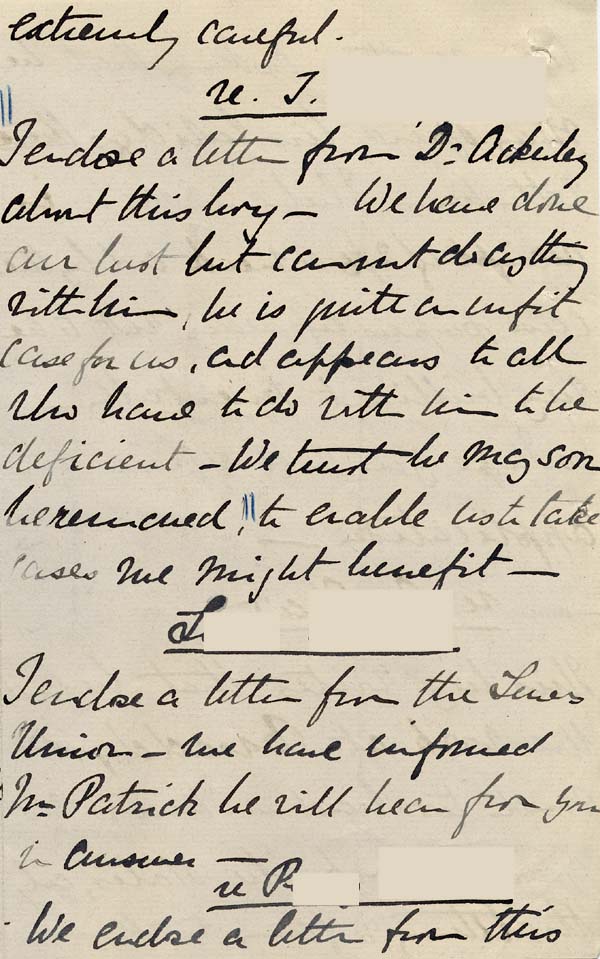 extremely careful.
re. T.
I enclose a letter from Dr Ackerley
about this boy — We have done
our best but cannot do anything
with him, he is quite an unfit
case for us, and appears to all
who have to do with him to be
deficient — We trust he may soon
be removed, to enable us to take
cases we might benefit —
I enclose a letter from the Lewes
Union — we have informed
Mr Patrick he will hear from you
in answer —
re P.
We enclose a letter from this